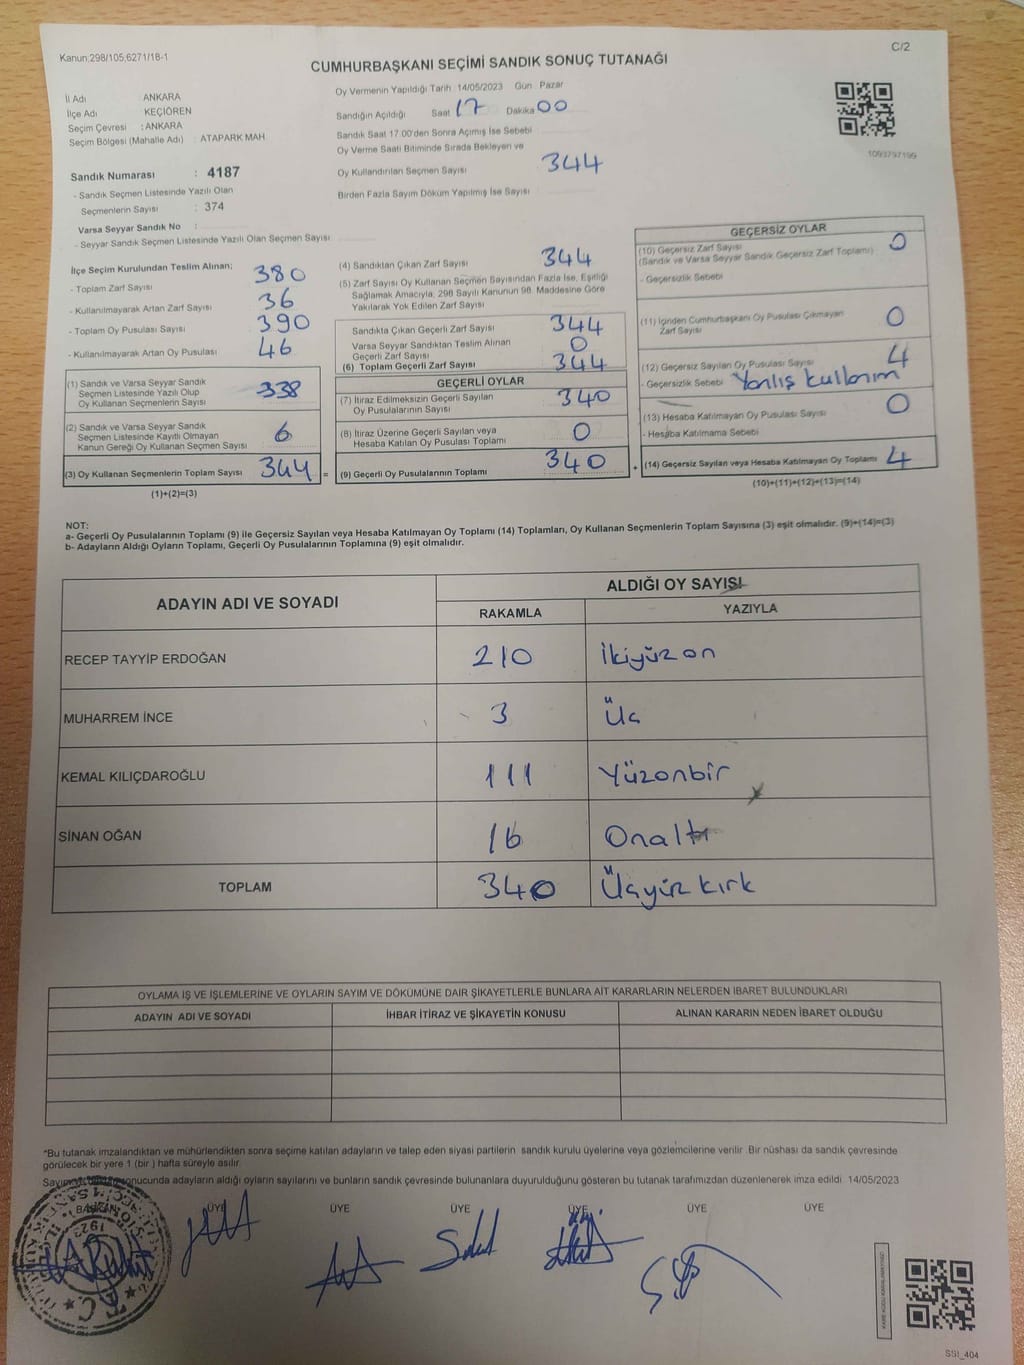 Kanun;298/105,6271/18-1
C/2
CUMHURBAŞKANI SEÇİMİ SANDIK SONUÇ TUTANAĞI
İl Adı ANKARA
İlçe Adı KEÇİÖREN
Seçim Çevresi : ANKARA
Seçim Bölgesi (Mahalle Adı) : ATAPARK MAH
Sandık Numarası : 4187
- Sandık Seçmen Listesinde Yazılı Olan
Seçmenlerin Sayısı : 374
Varsa Seyyar Sandık No :
- Seyyar Sandık Seçmen Listesinde Yazılı Olan Seçmen Sayısı
Oy Vermenin Yapıldığı Tarih 14/05/2023 Gün Pazar
Sandığın Açıldığı Saat 17 Dakika 00
Sandık Saat 17:00'den Sonra Açımış İse Sebebi
Oy Verme Saati Bitiminde Sırada Bekleyen ve
Oy Kullandırılan Seçmen Sayısı 344
Birden Fazla Sayım Döküm Yapılmış İse Sayısı
1093797199
İlçe Seçim Kurulundan Teslim Alınan;
- Toplam Zarf Sayısı 380
- Kullanılmayarak Artan Zarf Sayısı 36
- Toplam Oy Pusulası Sayısı 390
- Kullanılmayarak Artan Oy Pusulası 46
(1) Sandık ve Varsa Seyyar Sandık
Seçmen Listesinde Yazılı Olup
Oy Kullanan Seçmenlerin Sayısı 338
(2) Sandık ve Varsa Seyyar Sandık
Seçmen Listesinde Kayıtlı Olmayan
Kanun Gereği Oy Kullanan Seçmen Sayısı 6
(3) Oy Kullanan Seçmenlerin Toplam Sayısı 344 =
(1)+(2)=(3)
(4) Sandıktan Çıkan Zarf Sayısı 344
(5) Zarf Sayısı Oy Kullanan Seçmen Sayısından Fazla İse, Eşitliği
Sağlamak Amacıyla, 298 Sayılı Kanunun 98. Maddesine Göre
Yakılarak Yok Edilen Zarf Sayısı
Sandıkta Çıkan Geçerli Zarf Sayısı 344
Varsa Seyyar Sandıktan Teslim Alınan
Geçerli Zarf Sayısı 0
(6) Toplam Geçerli Zarf Sayısı 344
GEÇERLİ OYLAR
(7) İtiraz Edilmeksizin Geçerli Sayılan
Oy Pusulalarının Sayısı 340
(8) İtiraz Üzerine Geçerli Sayılan veya
Hesaba Katılan Oy Pusulası Toplamı 0
(9) Geçerli Oy Pusulalarının Toplamı 340 +
GEÇERSİZ OYLAR
(10) Geçersiz Zarf Sayısı 0
(Sandık ve Varsa Seyyar Sandık Geçersiz Zarf Toplamı)
- Geçersizlik Sebebi
(11) İçinden Cumhurbaşkanı Oy Pusulası Çıkmayan
Zarf Sayısı 0
(12) Geçersiz Sayılan Oy Pusulası Sayısı 4
- Geçersizlik Sebebi Yanlış kullanım
(13) Hesaba Katılmayan Oy Pusulası Sayısı 0
- Hesaba Katılmama Sebebi
(14) Geçersiz Sayılan veya Hesaba Katılmayan Oy Toplamı 4
(10)+(11)+(12)+(13)=(14)
NOT:
a- Geçerli Oy Pusulalarının Toplamı (9) ile Geçersiz Sayılan veya Hesaba Katılmayan Oy Toplamı (14) Toplamları, Oy Kullanan Seçmenlerin Toplam Sayısına (3) eşit olmalıdır. (9)+(14)=(3)
b- Adayların Aldığı Oyların Toplamı, Geçerli Oy Pusulalarının Toplamına (9) eşit olmalıdır.
ADAYIN ADI VE SOYADI
ALDIĞI OY SAYISI
RAKAMLA YAZIYLA
RECEP TAYYİP ERDOĞAN 210 İkiyüzon
MUHARREM İNCE 3 Üç
KEMAL KILIÇDAROĞLU 111 Yüzonbir
SİNAN OĞAN 16 Onaltı
TOPLAM 340 Üçyüz kırk
OYLAMA İŞ VE İŞLEMLERİNE VE OYLARIN SAYIM VE DÖKÜMÜNE DAİR ŞİKAYETLERLE BUNLARA AİT KARARLARIN NELERDEN İBARET BULUNDUKLARI
ADAYIN ADI VE SOYADI İHBAR İTİRAZ VE ŞİKAYETİN KONUSU ALINAN KARARIN NEDEN İBARET OLDUĞU
*Bu tutanak imzalandıktan ve mühürlendikten sonra seçime katılan adayların ve talep eden siyasi partilerin sandık kurulu üyelerine veya gözlemcilerine verilir. Bir nüshası da sandık çevresinde
görülecek bir yere 1 (bir) hafta süreyle asılır.
sonucunda adayların aldığı oyların sayılarını ve bunların sandık çevresinde bulunanlara duyurulduğunu gösteren bu tutanak tarafımızdan düzenlenerek imza edildi. 14/05/2023
BAŞKAN ÜYE ÜYE ÜYE ÜYE ÜYE ÜYE
1923
T.C.
SSI_404